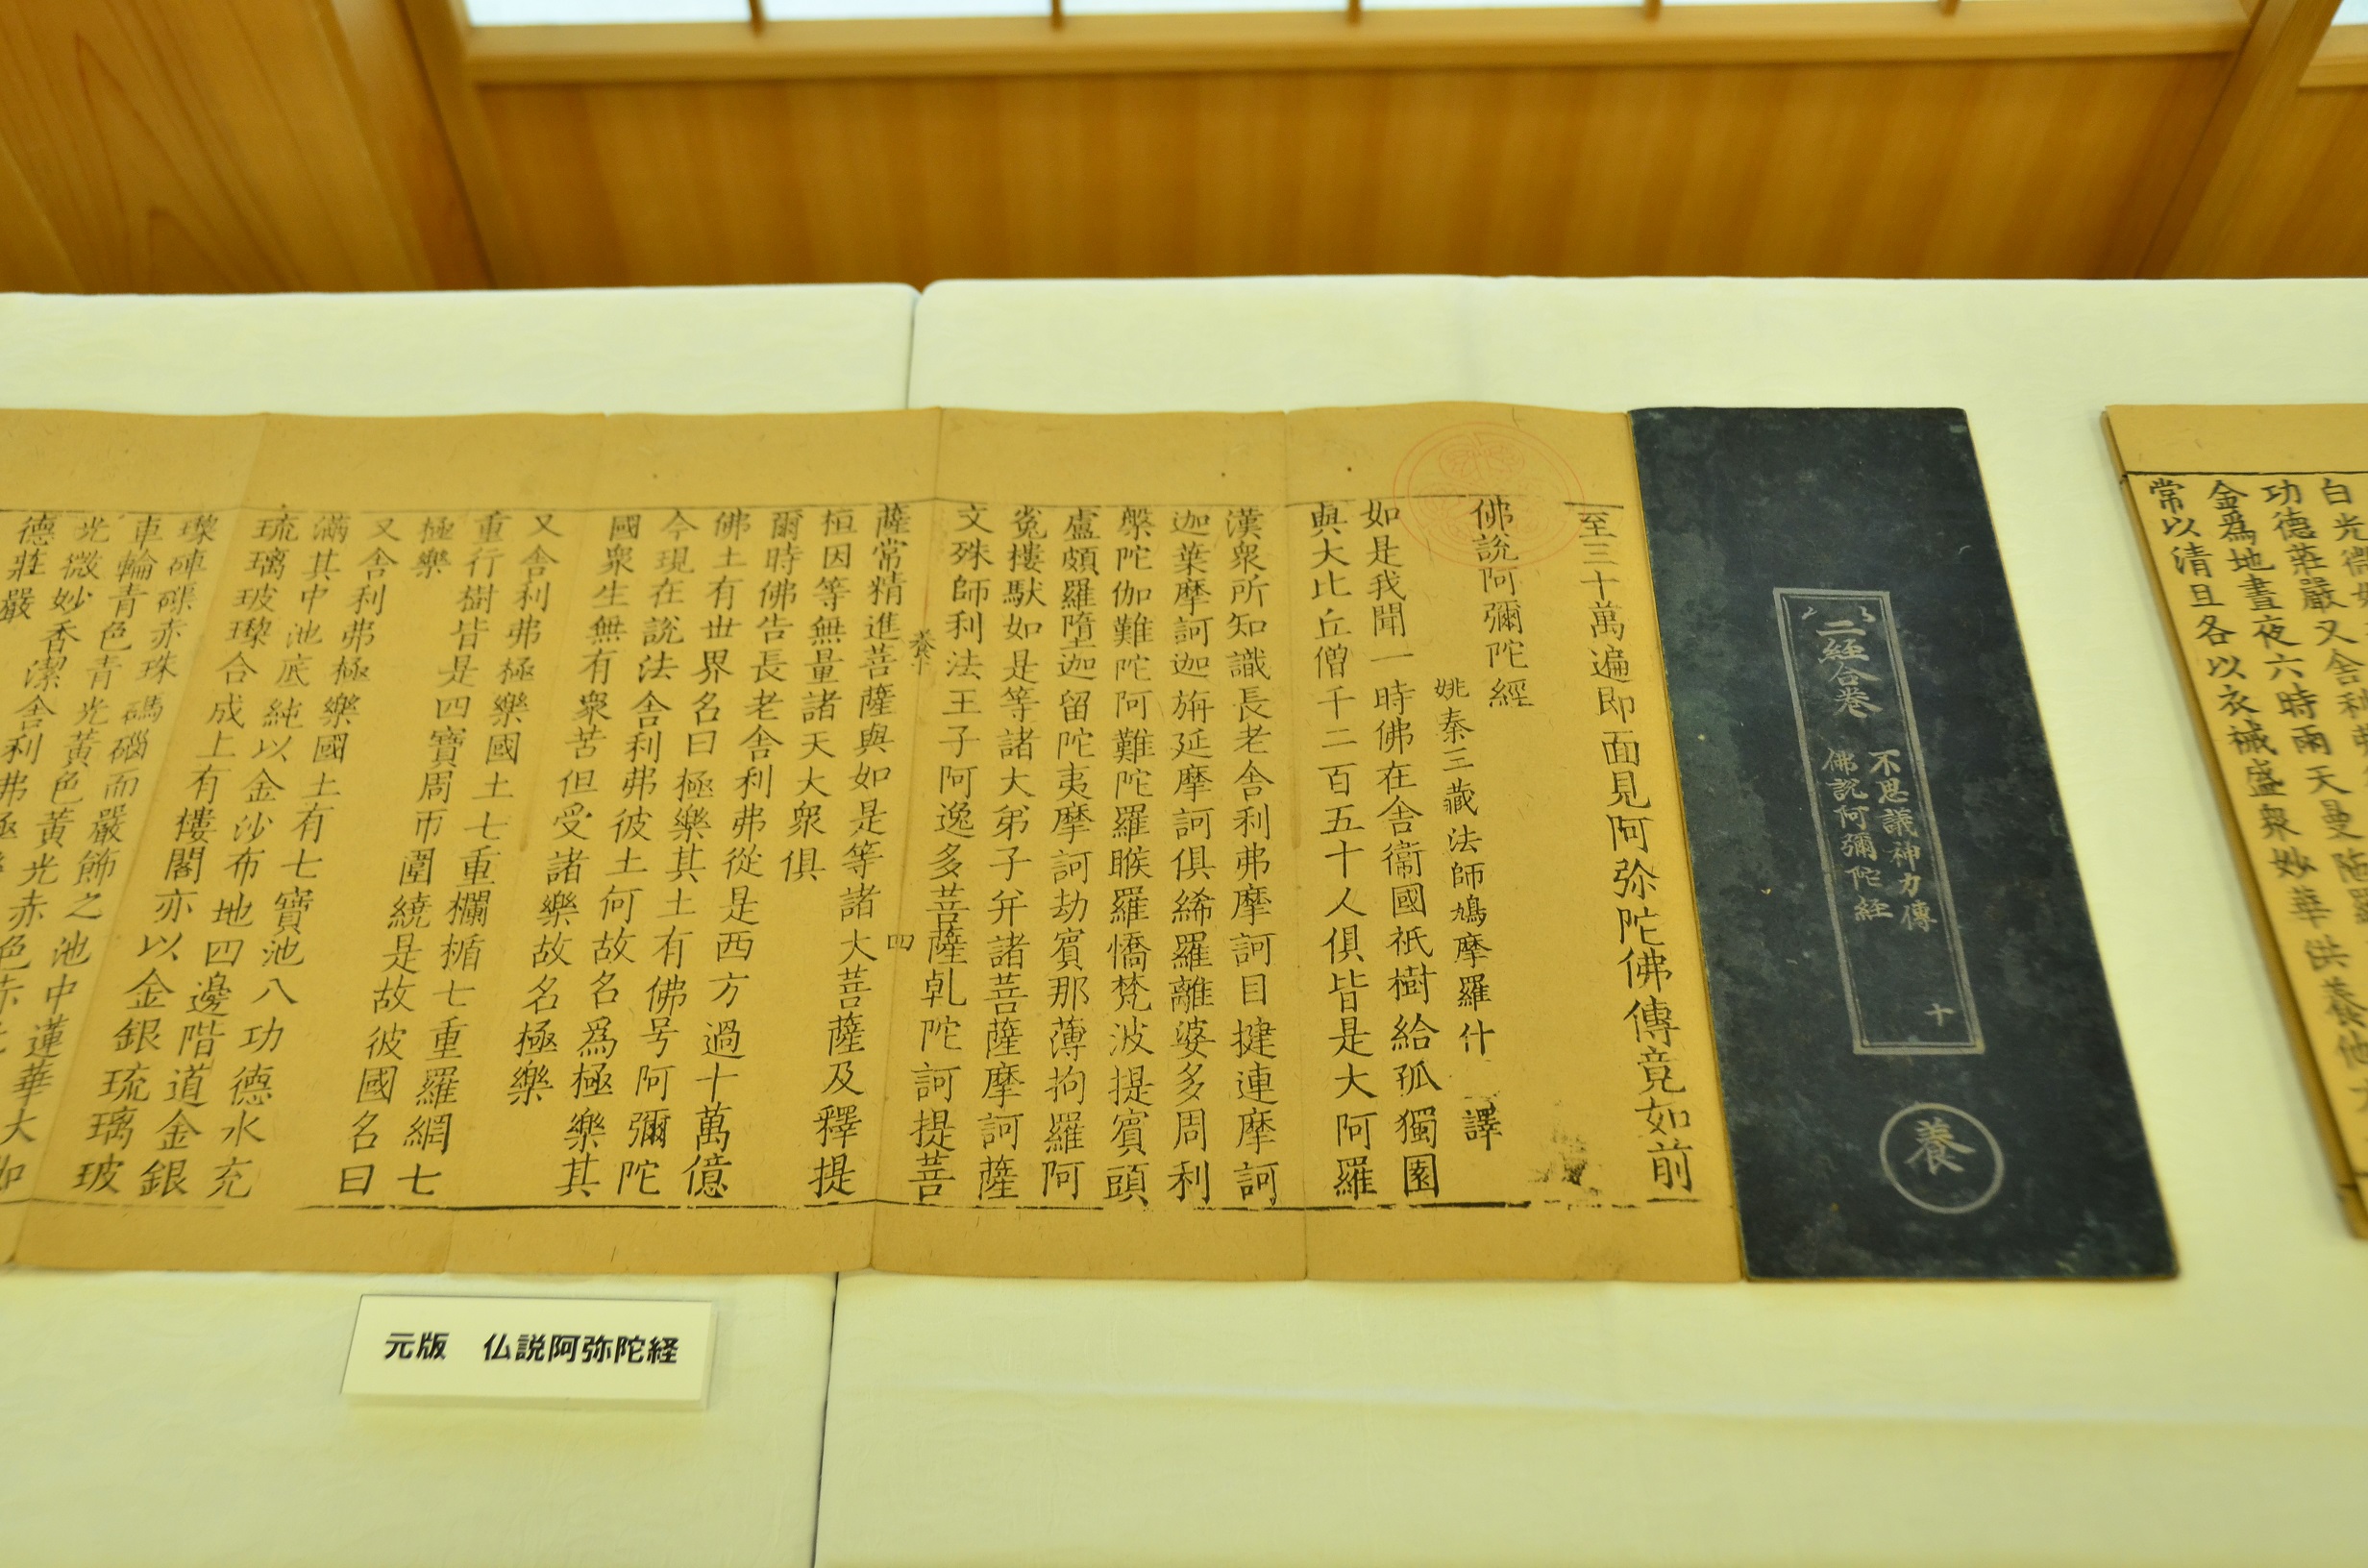 白光微妙
功德莊嚴又舍利弗
金爲地晝夜六時雨天曼陁羅
常以清旦各以衣裓盛衆妙華供養他
二經合卷
不思議神力傳
佛説阿彌陀経
十
養
至三十萬遍即面見阿弥陀佛傳竟如前
佛說阿彌陀經
姚秦三藏法師鳩摩羅什 譯
如是我聞一時佛在舍衞國祇樹給孤獨園
與大比丘僧千二百五十人俱皆是大阿羅
漢衆所知識長老舍利弗摩訶目揵連摩訶
迦葉摩訶迦旃延摩訶俱絺羅離婆多周利
槃陀伽難陀阿難陀羅睺羅憍梵波提賓頭
盧頗羅墮迦留陀夷摩訶劫賓那薄拘羅阿
㝹樓馱如是等諸大弟子并諸菩薩摩訶薩
文殊師利法王子阿逸多菩薩乹陀訶提菩
養十
四
薩常精進菩薩與如是等諸大菩薩及釋提
桓因等無量諸天大衆俱
爾時佛告長老舍利弗從是西方過十萬億
佛土有世界名曰極樂其土有佛号阿彌陀
今現在説法舍利弗彼土何故名爲極樂其
國衆生無有衆苦但受諸樂故名極樂
又舍利弗極樂國土七重欄楯七重羅網七
重行樹皆是四寶周帀圍繞是故彼國名曰
極樂
又舍利弗極樂國土有七寶池八功德水充
滿其中池底純以金沙布地四邊階道金銀
琉璃玻瓈合成上有樓閣亦以金銀琉璃玻
瓈硨磲赤珠碼碯而嚴飾之池中蓮華大如
車輪青色青光黃色黃光赤色赤光
光微妙香潔舍利弗極樂
德莊嚴
元版　仏説阿弥陀経